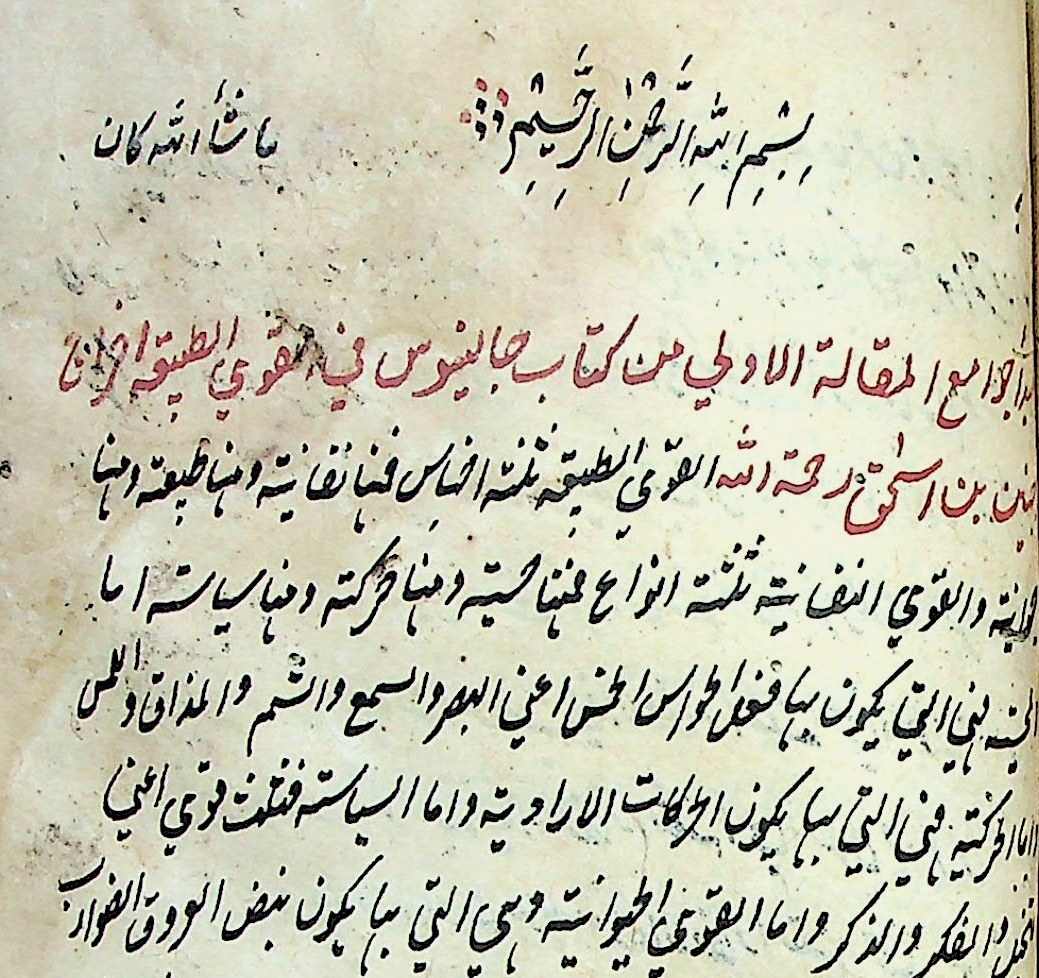 بِسْمِ اللهِ الرَّحْمٰنِ الرَّحِيْمِ ما شأ الله كان
جوامع المقالة الاولي من كتاب جالينوس في القوي الطبيعية اخراج
حنين بن اسحٰق رحمة الله القوي الطبيعية ثلثة اجناس فمنها نفسانية ومنها طبيعية ومنها
حيوانية والقوي النفسانية ثلثة انواع فمنها حسية ومنها حركية ومنها سياسية اما
الحسية فهي التي يكون بها فعل الحواس الخمس اعني البصر والسمع والشم والمذاق واللمس
واما الحركية فهي التي بها يكون الحركات الارادية واما السياسية فثلث قوي اعني
التخيل والفكر والذكر واما القوي الحيوانية وهي التي بها يكون نبض العروق الضوارب